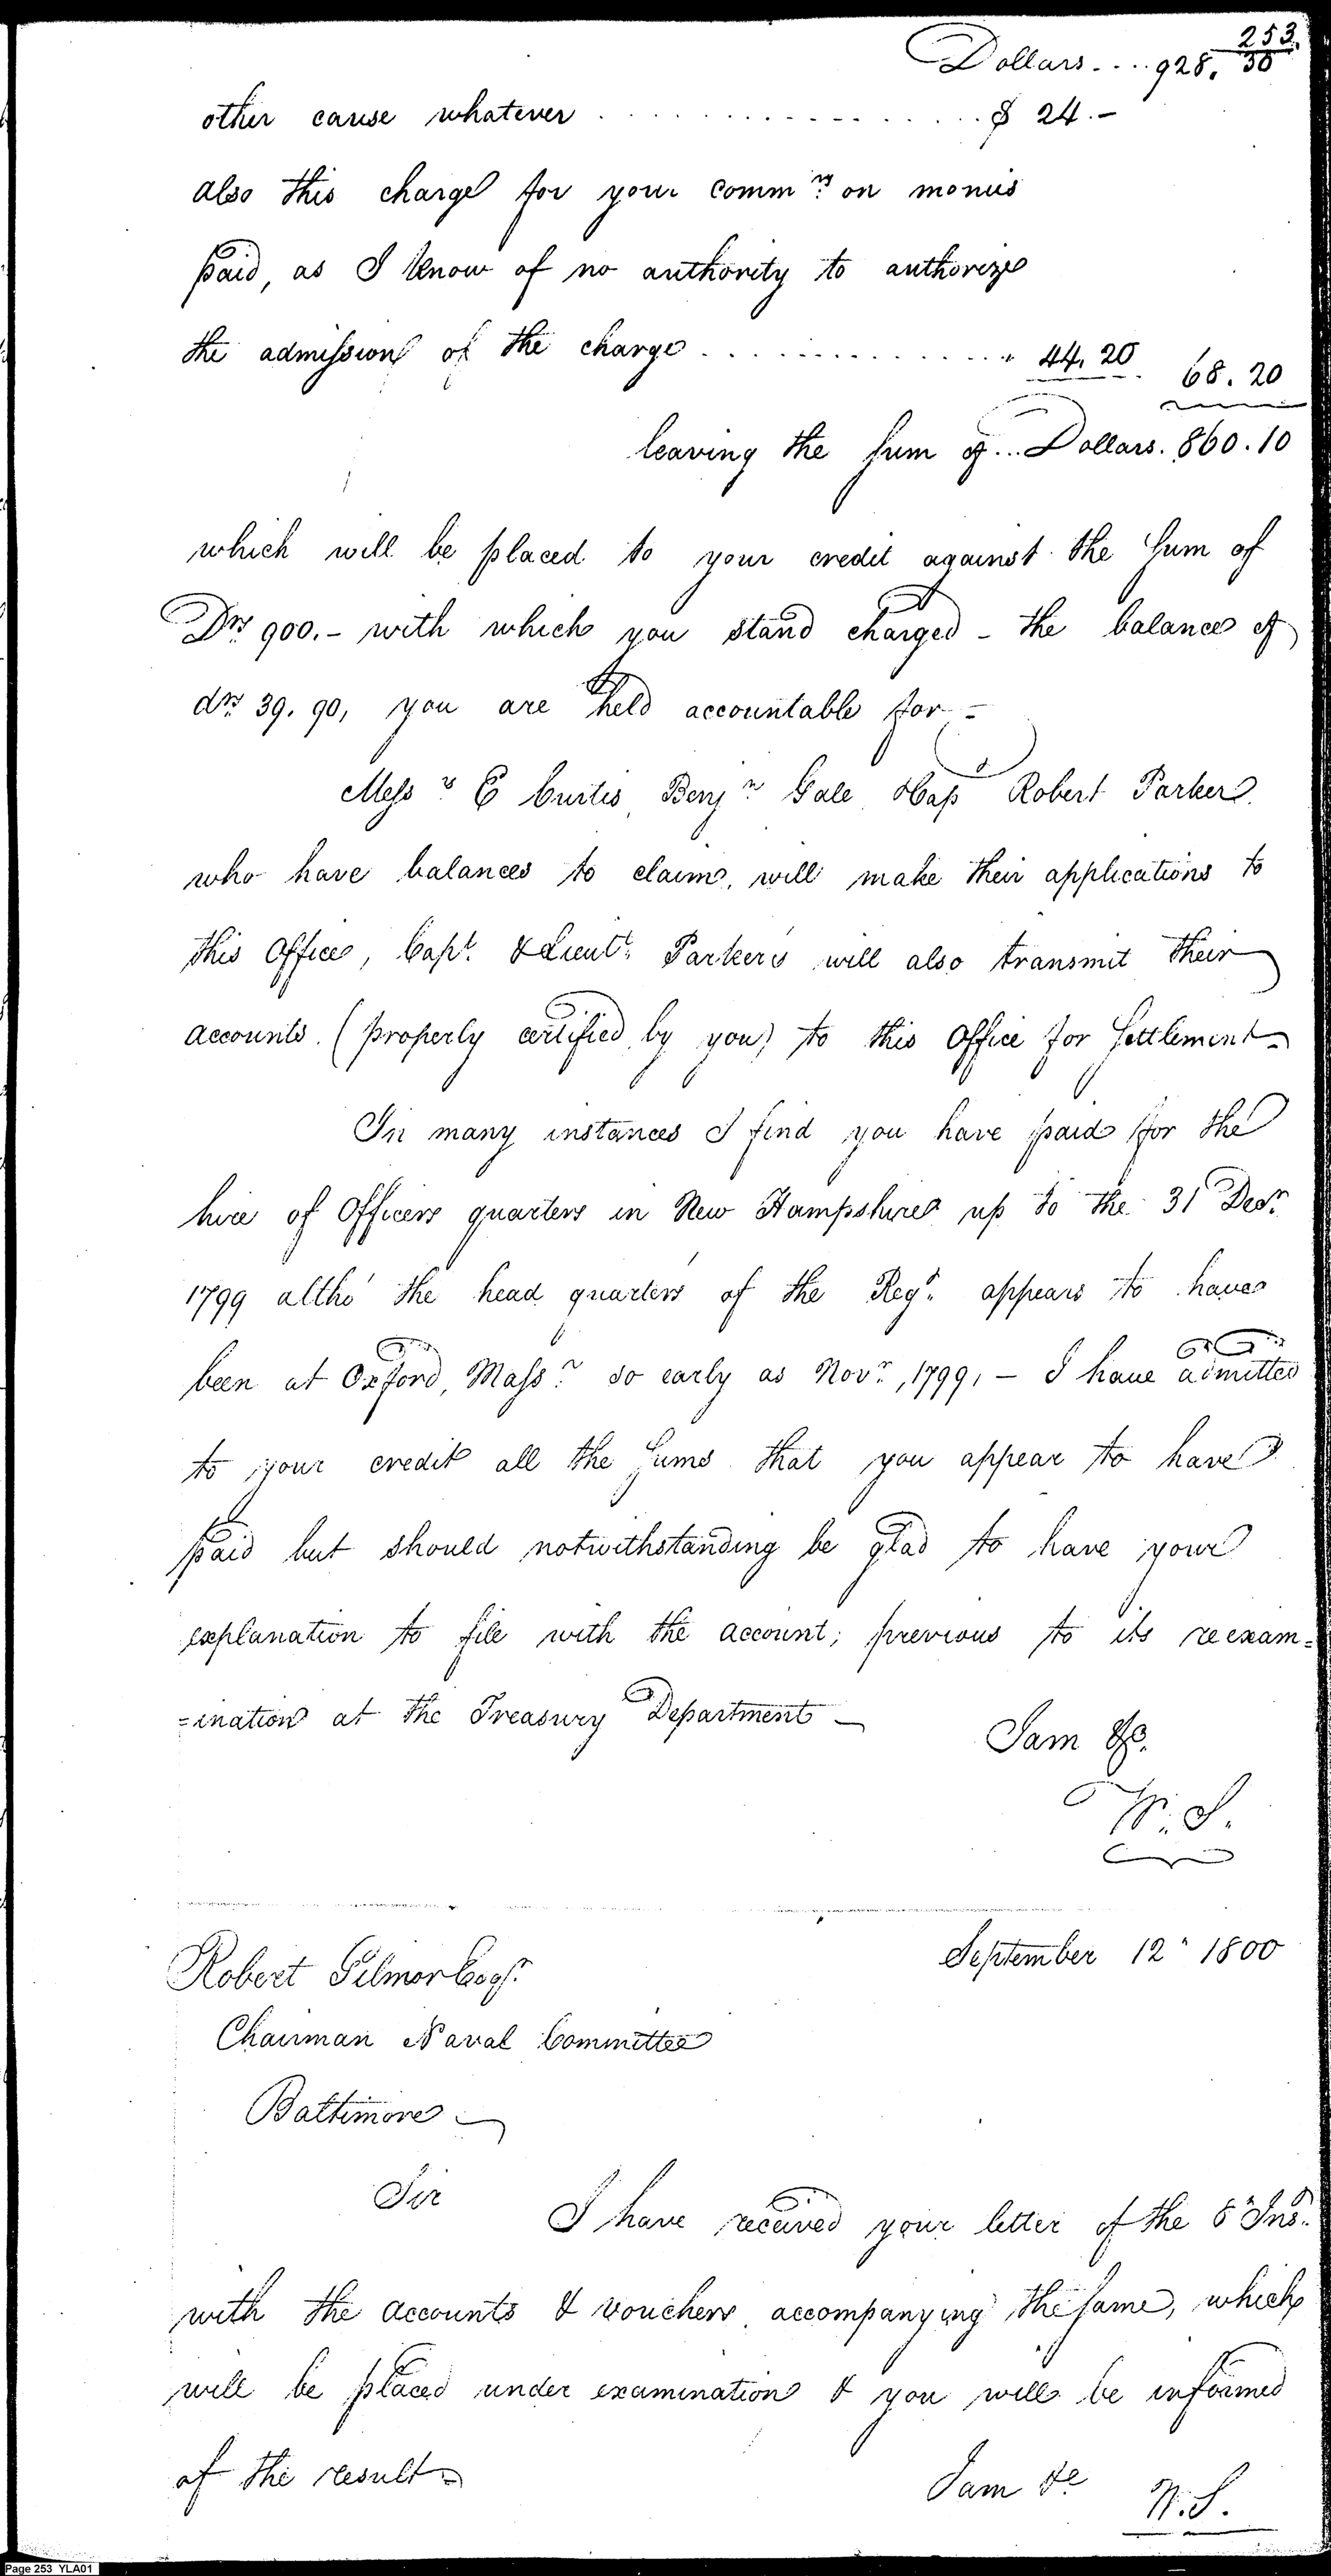 253.
Dollars.... 928. 30
other cause whatever . . . . . . . . . . $ 24.-
also this charge for your commns. on monies
paid, as I know of no authority to authorize
the admission of the charge . . . . . . . . . . " 44.20 68.20
leaving the sum of... Dollars. 860.10
which will be placed to your credit against the Sum of
Drs. 900.- with which you stand charged - the balance of
drs. 39.90, you are held accountable for -
Messrs. E Curtis, Benjn. Gale Robert Parker
who have balances to claim, will make their applications to
this Office, Capt. & Lieut. Parkers will also transmit their
accounts (properly certified by you) to this Office for Settlement -
In many instances I find you have paid for the
hire of Officers quarters in New Hampshire up to the 31 Decr.
1799 altho' the head quarters of the Regt. appears to have
been at Oxford, Masss. so early as Novr., 1799, - I have admitted
to your credit all the Sums that you appear to have
paid but should notwithstanding be glad to have your
explanation to file with the account; previous to its reexam=
=ination at the Treasury Department -
I am &c.
W. S.
September 12th 1800
Robert Gilmor Esqr.
Chairman Naval Committee
Baltimore -
Sir
I have received your letter of the Inst.
with the accounts & vouchers accompanying the same, which
will be placed under examination & you will be informed
of the result -
I am &c
W. S.
Page 253 YLA01